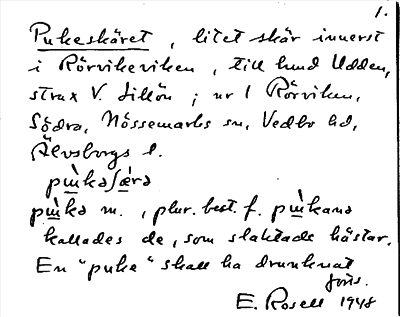 1.
Pukeskäret, litet skär innerst
i Rörvikeviken, till hmd Udden,
strax V. Lillön; nr 1 Rörviken,
Södra, Nössemarks sn, Vedbo hd,
Älvsborgs l.
pɯ̀kəʃæ̀rə
pɯ̀kə m., plur. best. f. pɯ̀kanə
kallades de, som slaktade hästar.
En "puke" skall ha drunknat
förr.
E. Rosell 1948